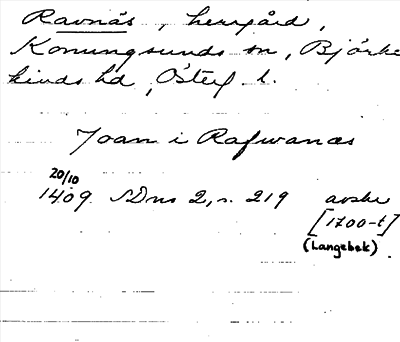 Ravnäs, herrgård,
Konungsunds sn, Björke
kinds hd, Österg l.
Joan i Rafwanæs
20/10
1409 SDns 2, s. 219 avskr
[1700-t]
(Langebek)